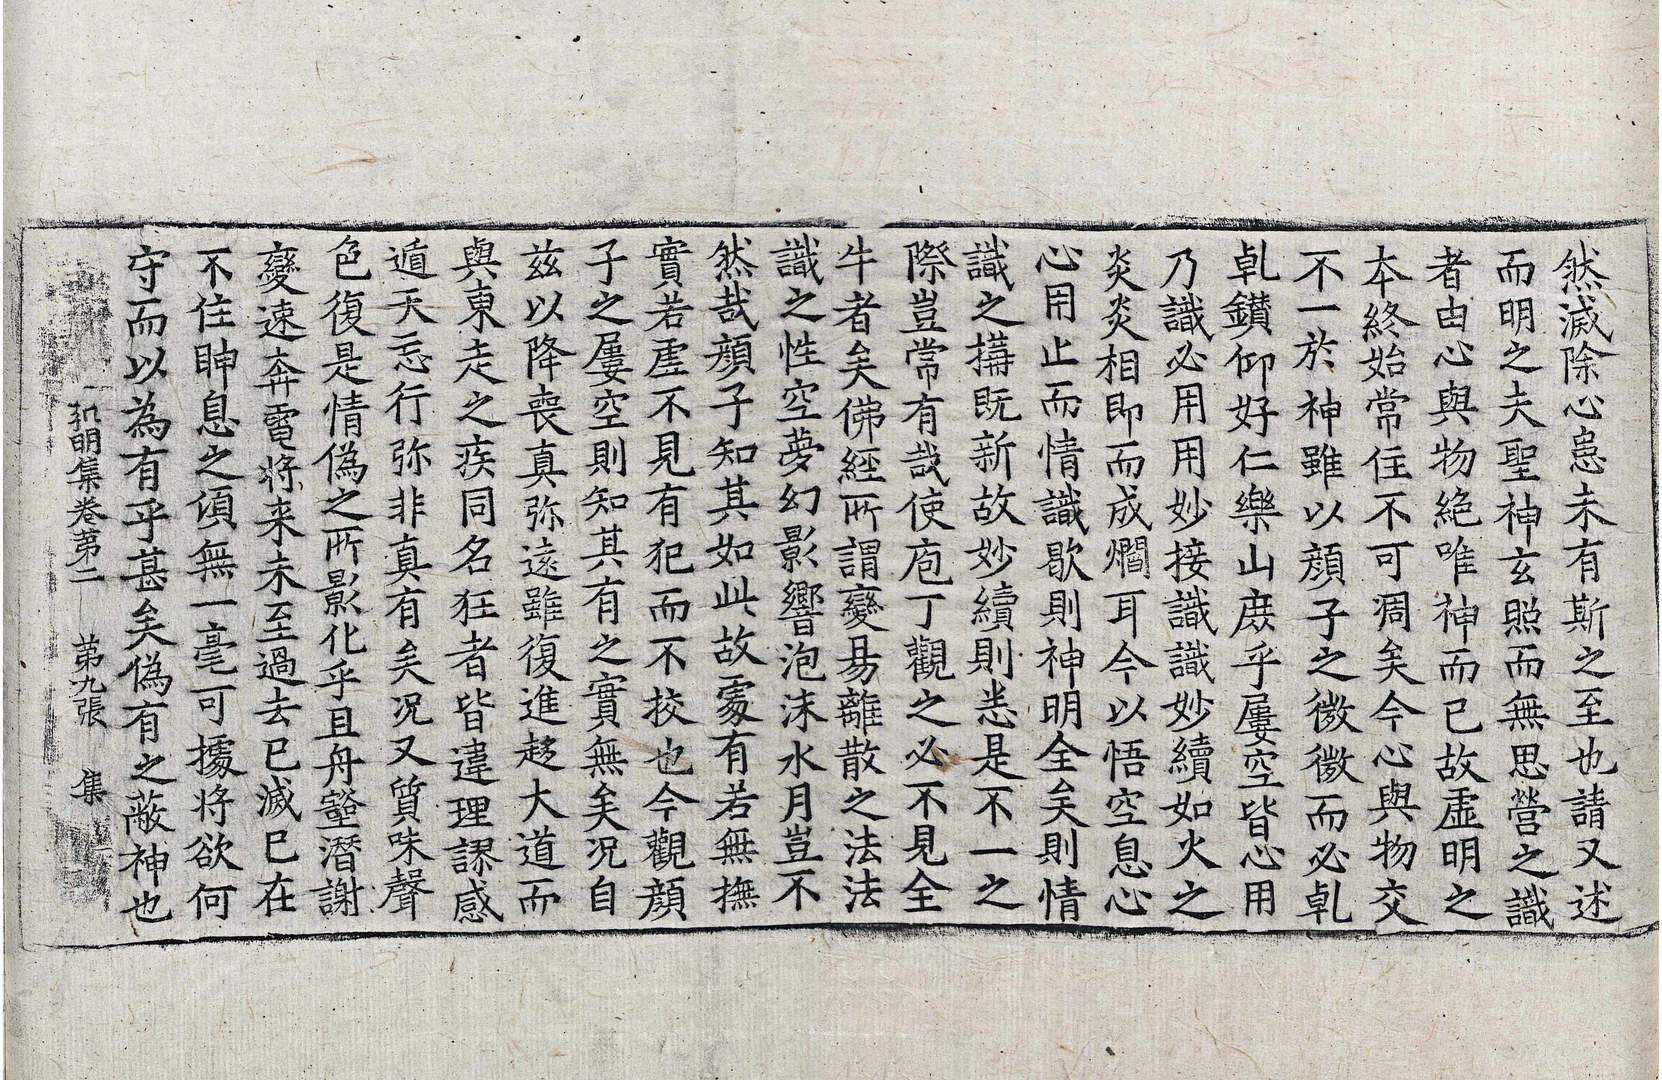 然滅除心患未有斯之至也請又述
而明之夫聖神玄照而無思營之識
者由心與物絶唯神而已故虛明之
本終始常住不可凋矣今心與物交
不一於神雖以顔子之微微而必乹
乹鑚仰好仁樂山庶乎屢空皆心用
乃識必用用妙接識識妙續如火之
炎炎相即而成爓耳今以悟空息心
心用止而情識歇則神明全矣則情
識之搆既新故妙續則悉是不一之
際豈常有哉使庖丁觀之必不見全
牛者矣佛經所謂變昜離散之法法
識之性空夢幻影響泡沫水月豈不
然哉顔子知其如此故處有若無撫
實若虛不見有犯而不挍也今觀顔
子之屢空則知其有之實無矣况自
兹以降喪真弥遠雖復進趍大道而
與東走之疾同名狂者皆違理謬感
遁天忘行弥非真有矣况又質味聲
色復是情僞之所影化乎且舟壑潛謝
變速奔電将来未至過去已滅已在
不住眒息之頃無一毫可據将欲何
守而以為有乎甚矣僞有之蔽神也
弘明集卷第二 第九張 集